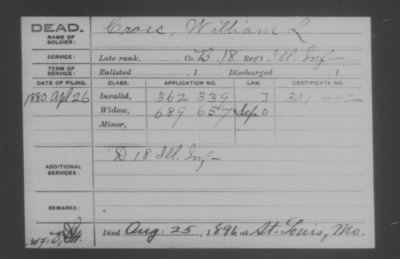 DEAD.
NAME OF SOLDIER:
Cross, William L
SERVICE:
Late rank, Co. B, 18 Reg't Ill. Inf
TERM OF SERVICE:
Enlisted , 1 Discharged , 1
DATE OF FILING. CLASS. APPLICATION NO. LAW. CERTIFICATE NO.
1880 Apl 26 Invalid, 362 339 J
Widow, 689 657
Minor,
ADDITIONAL SERVICES:
D 18 Ill. Inf
REMARKS:
Died Aug. 25, 1896 at St. Louis, Mo.